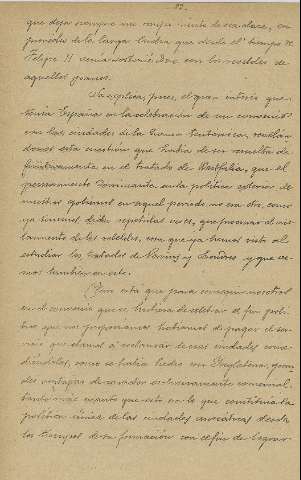 que deja siempre un
periodo de la larga lucha que desde el tiempo de
Felipe II venia sosteniendo con los rebeldes de
aquellos paises.
Se explica, pues, el gran interés que
tenia España en la celebracion de un convenio
con las ciudades de la Hansa Teutonica, revelan-
donos esta cuestion que habia de ser resuelta de-
finitivamente en el tratado de Westfalia, que el
pensamiento dominante en la politica exterior de
nuestros gobiernos en aquel periodo no era otro, como
ya hemos dicho repetidas veces, que procurar el ais-
lamiento de los rebeldes, cosa que ya hemos visto al
estudiar los tratados de Vervins y Londres y que ve-
mos tambien en este.
Claro está que para conseguir nosotros
en el convenio que se hubiera de celebrar el fin poli-
tico que nos proponiamos habiamos de pagar el servi-
cio que ibamos á reclamar de esas ciudades conce-
diendoles, como se habia hecho con Inglaterra, gran-
des ventajas de caracter exclusivamente comercial,
tanto más cuanto que esto es lo que constituia la
politica única de las ciudades asociativas desde
los tiempos de su formacion con el fin de